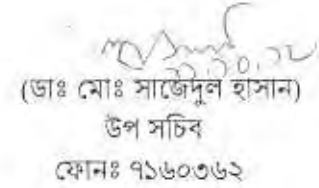 (ডাঃ মোঃ সাজেদুল হাসান)
উপ সচিব
ফোনঃ ৭১৬০৩৬২